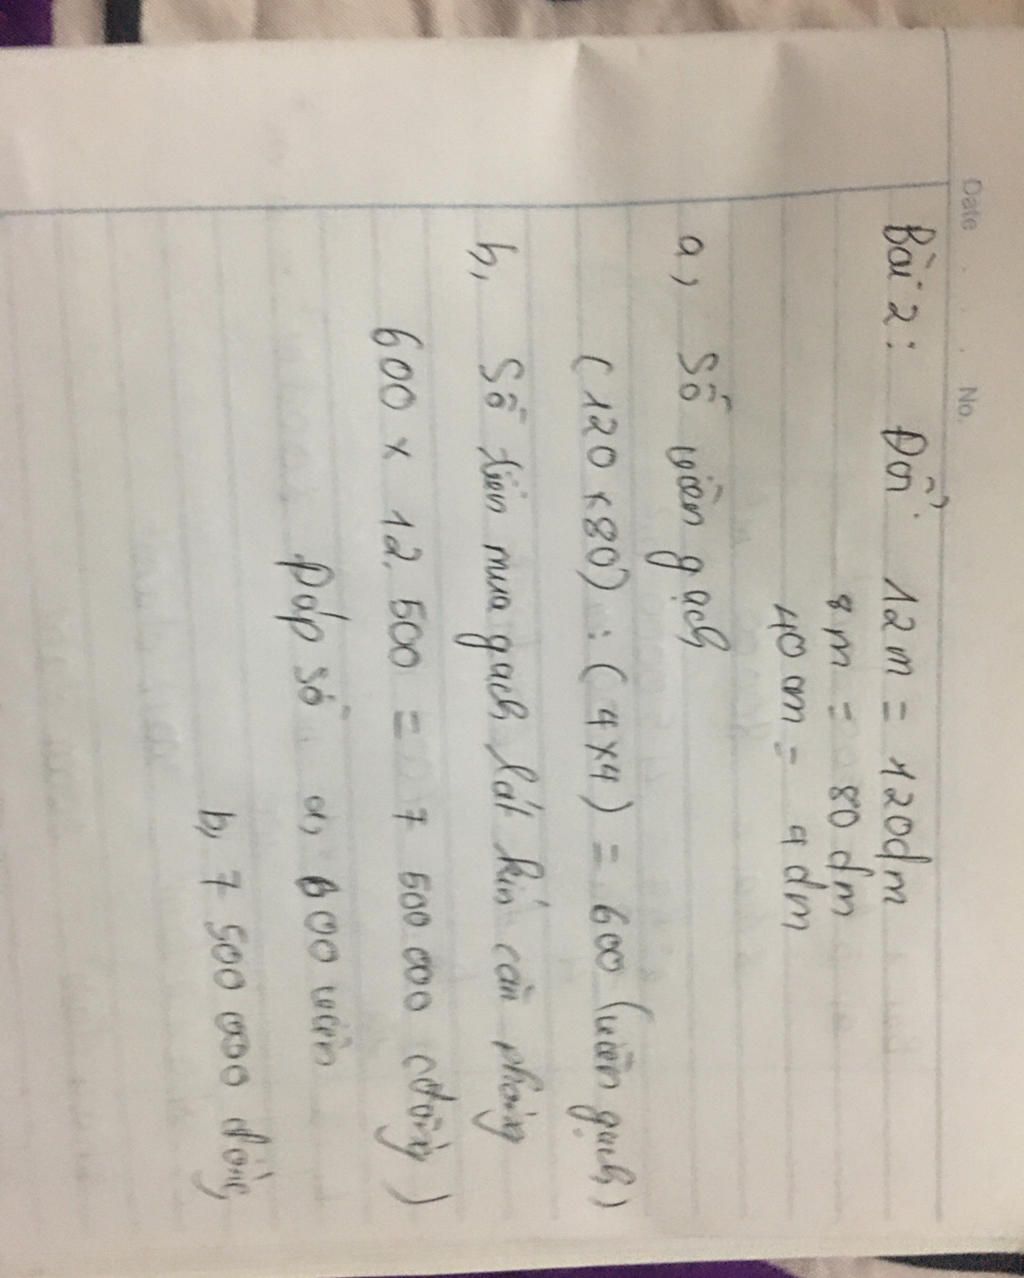 Date . . . No.
Bài 2: Đổi 12m = 120dm
8m = 80dm
40cm = 4dm
a, Số viên gạch
(120 x 80) : (4x4) = 600 (viên gạch)
b, Số tiền mua gạch lát kín căn phòng
600 x 12.500 = 7 500 000 (đồng)
Đáp số a, 600 viên
b, 7 500 000 đồng